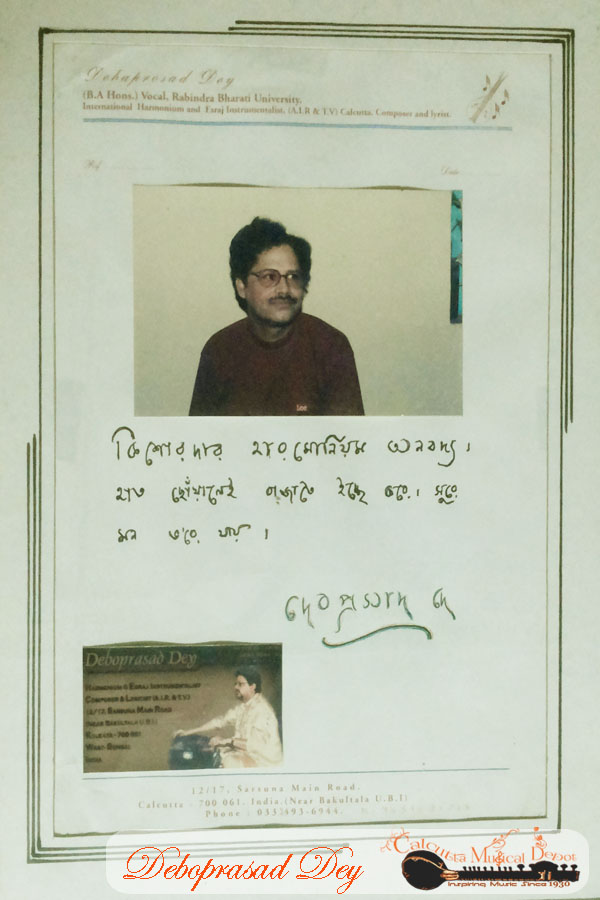 Debaprasad Dey
(B.A Hons.) Vocal, Rabindra Bharati University.
International Harmonium and Esraj Instrumentalist. (A.I.R & T.V) Calcutta. Composer and lyrist.
Ref
Date
কিশোরদার হারমোনিয়ম অনবদ্য।
হাত ছোঁয়ালেই বাজাতে ইচ্ছে করে। সুরে
মন ভ'রে যায়।
দেবপ্রসাদ দে
Deboprasad Dey
Harmonium & Esraj Instrumentalist
Composer & Lyricist (A.I.R. & T.V.)
12/17, Sarsuna Main Road
(Near Bakultala U.B.I.)
Kolkata - 700 061
West Bengal
India
12/17, Sarsuna Main Road.
Calcutta - 700 061. India.(Near Bakultala U.B.I)
Phone : 033-493-6944.
Deboprasad Dey
Calcutta Musical Depot
Inspiring Music Since 1930